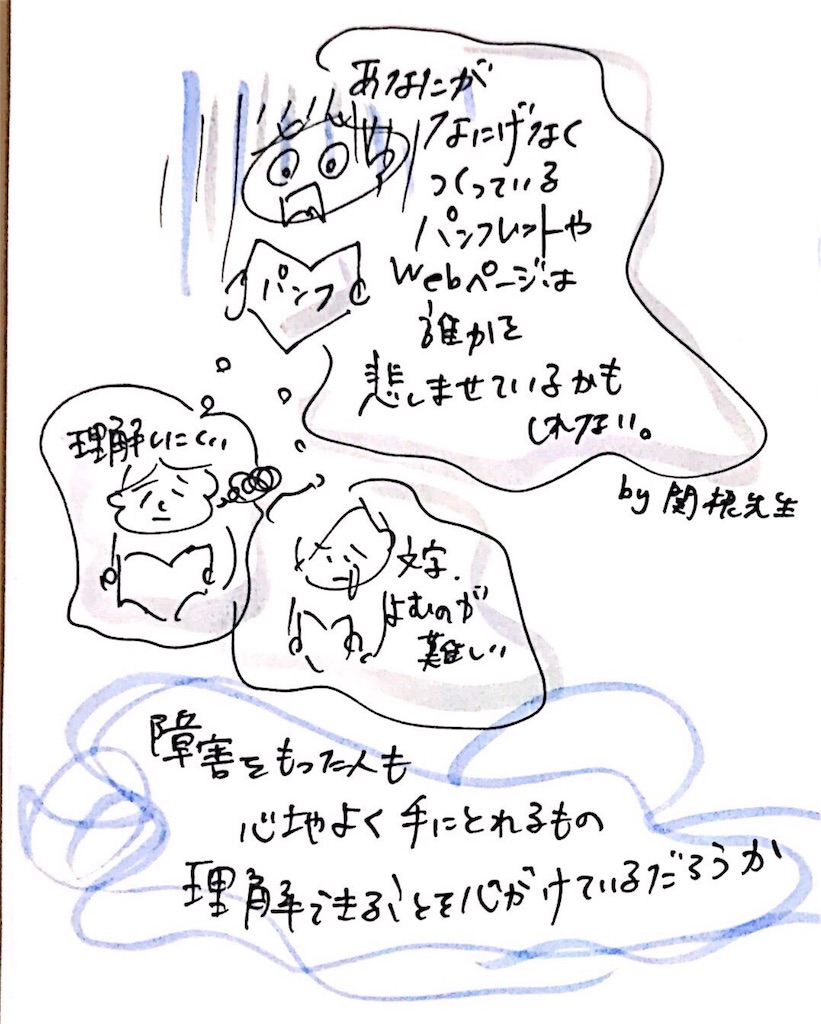 あなたが
なにげなく
つくっている
パンフレットや
Webページは
誰かを
悲しませているかも
しれない。
by 関根先生
パンフ
理解しにくい
文字.
よむのが
難しい
障害をもった人も
心地よく手にとれるもの
理解できることを心がけているだろうか